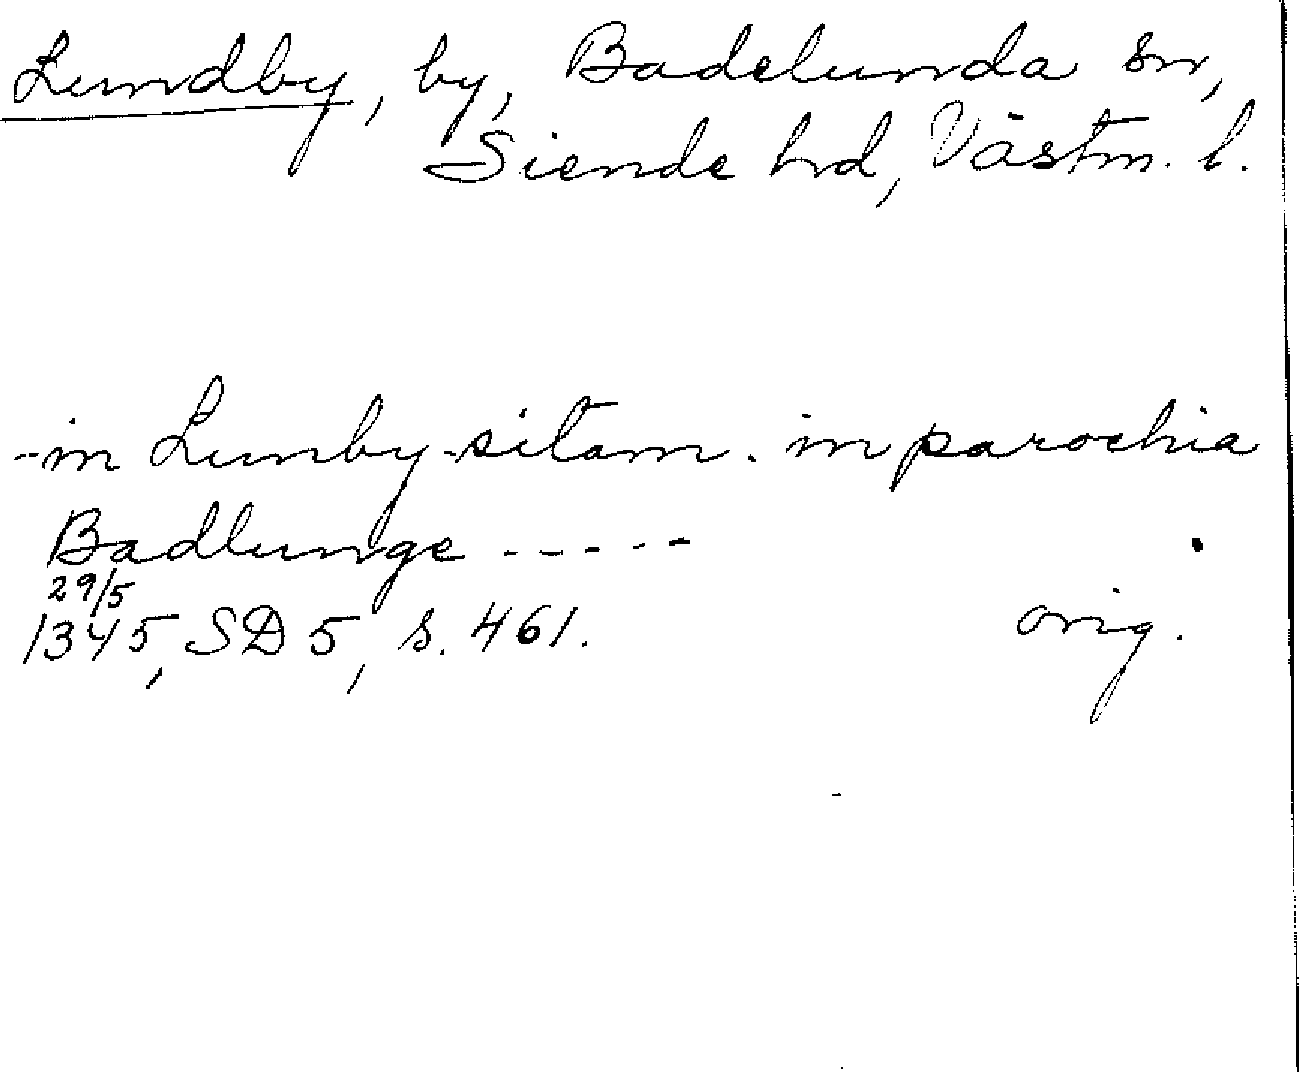 Lundby, by, Badelunda sn,
Siende hd, Västm. l.
-in Lunby-sitam. in parochia
Badlunge -----
29/5
1345, SD 5, s. 461. orig.